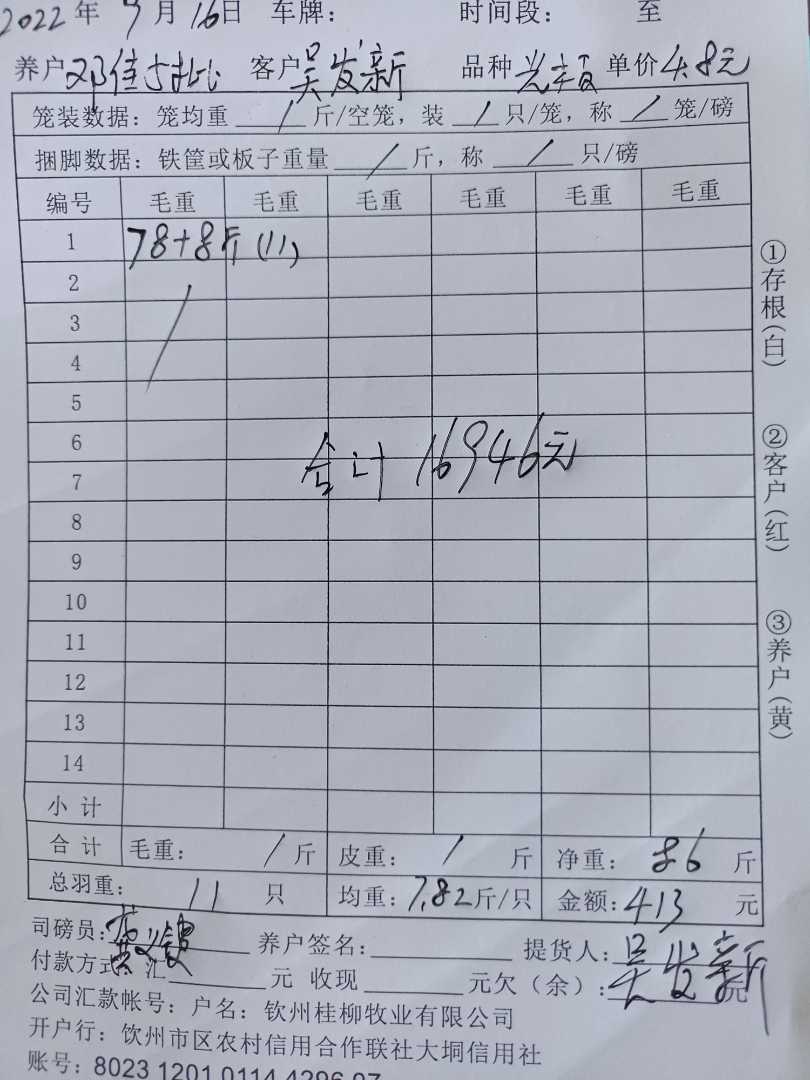 2022年9月16日 车牌： 时间段： 至
养户 客户吴发新 品种 单价4.8元
笼装数据：笼均重 / 斤/空笼，装 / 只/笼，称 / 笼/磅
捆脚数据：铁筐或板子重量 / 斤，称 / 只/磅
编号 毛重 毛重 毛重 毛重 毛重 毛重
1 78+8斤(11)
2
3
4
5
6
合计 16946元
7
8
9
10
11
12
13
14
小计
合计 毛重： / 斤 皮重： / 斤 净重：86 斤
总羽重： 11 只 均重：7.82斤/只 金额：413 元
司磅员： 养户签名： 提货人：吴发新
付款方式：汇 元 收现 元欠（余）： 元
公司汇款帐号：户名：钦州桂柳牧业有限公司
开户行：钦州市区农村信用合作联社大垌信用社
账号：8023 1201 0114 4296 07
①存根(白)
②客户(红)
③养户(黄)